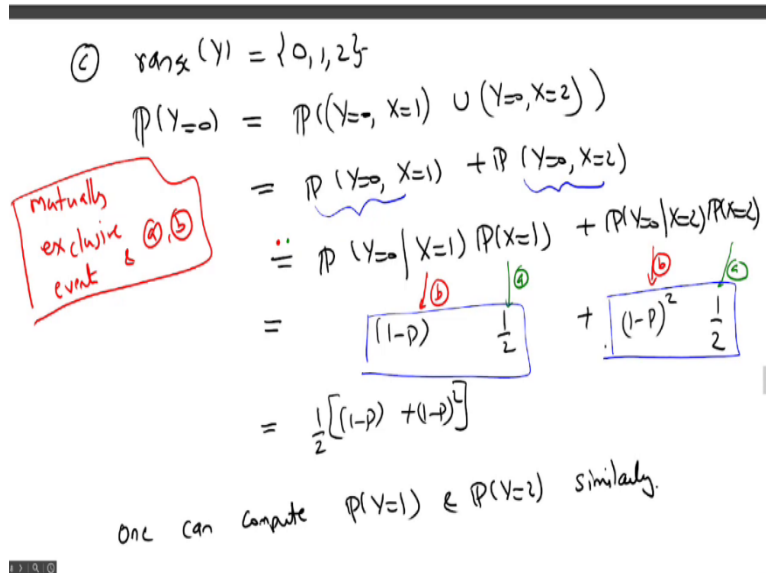 ⓒ range (Y) = {0,1,2}
P(Y=0) = P((Y=0, X=1) ∪ (Y=0, X=2))
= P(Y=0, X=1) + P(Y=0, X=2)
mutually
exclusive
event & ⓐ, ⓑ
= P(Y=0 | X=1) P(X=1) + P(Y=0 | X=2) P(X=2)
ⓑ ⓐ ⓑ ⓐ
= (1-p) 1/2 + (1-p)² 1/2
= 1/2 [(1-p) + (1-p)²]
One can compute P(Y=1) & P(Y=2) similarly.